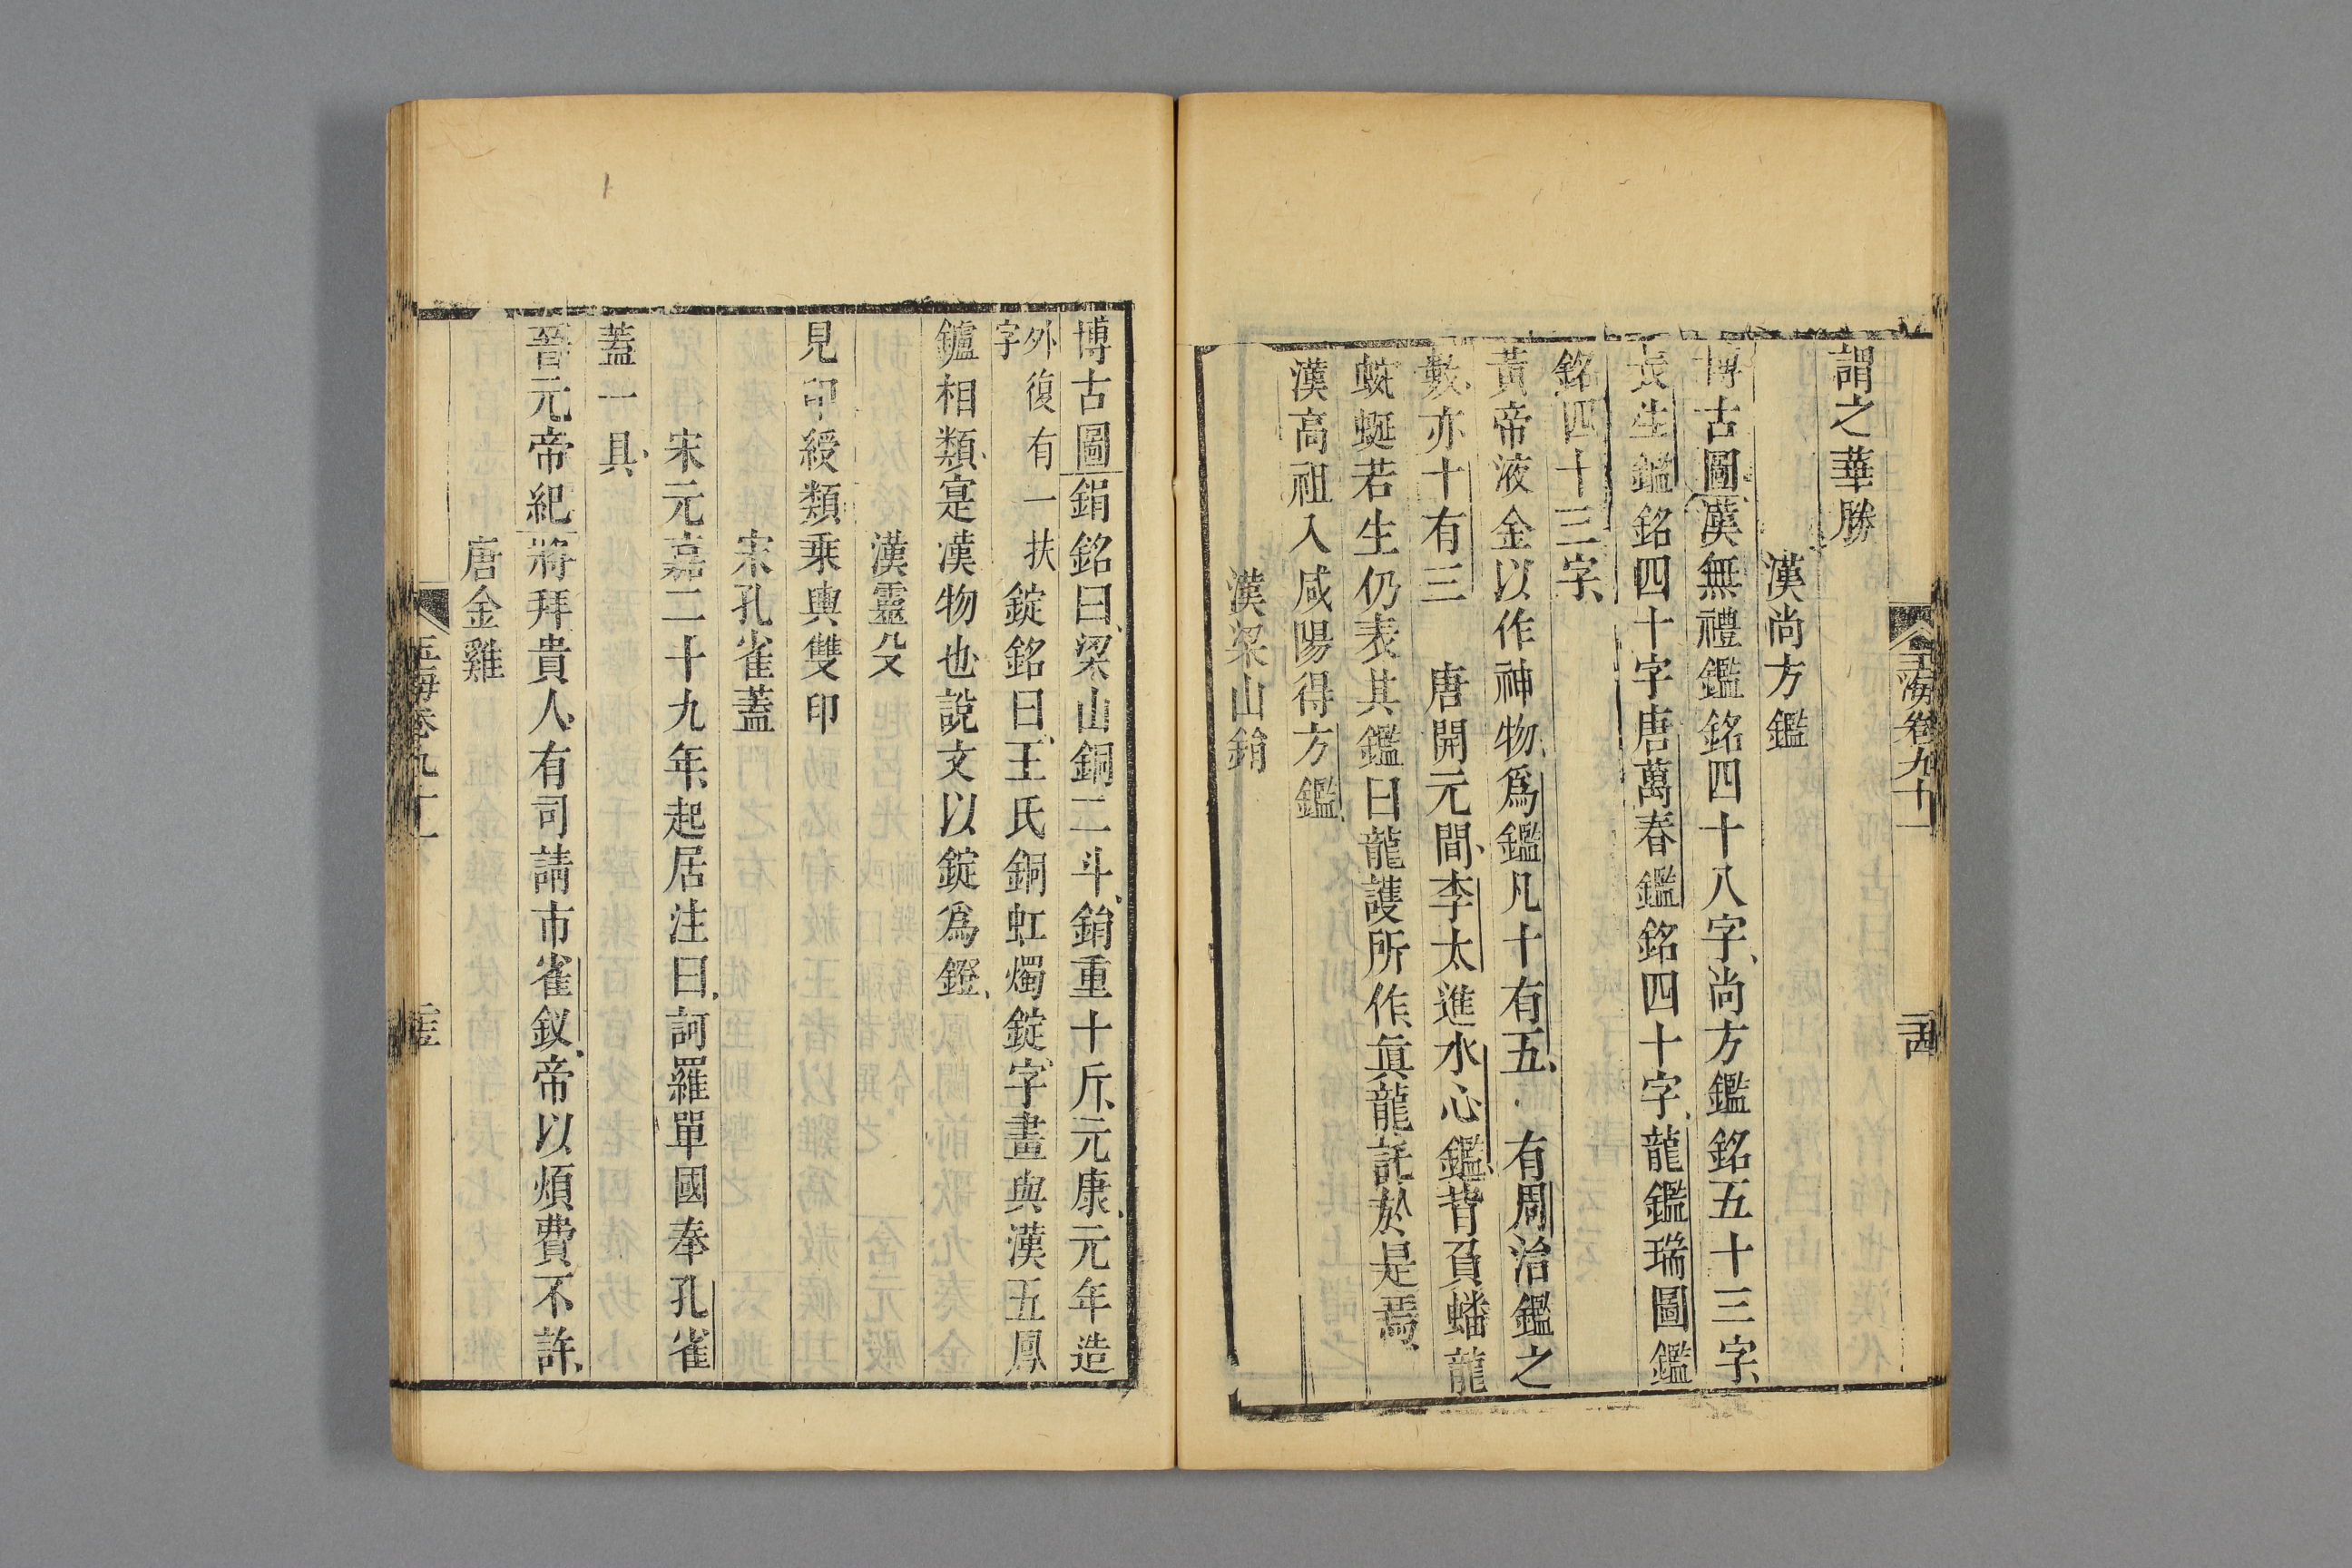 謂之華勝
漢尚方鑑
博古圖漢無禮鑑銘四十八字尚方鑑銘五十三字
長生鑑銘四十字唐萬春鑑銘四十字龍鑑瑞圖鑑
銘四十三字
黃帝液金以作神物爲鑑凡十有五有周治鑑之
數亦十有三 唐開元間李太進水心鑑背負蟠龍
蜿蜒若生仍表其鑑曰龍護所作眞龍託於是焉
漢高祖入咸陽得方鑑
漢梁山鋗
玉海卷九十一
博古圖鋗銘曰梁山銅二斗鋗重十斤元康元年造
外復有一扶
字
錠銘曰王氏銅虹燭錠字畫與漢五鳳
鑪相類寔漢物也說文以錠爲鐙
漢靈殳
見印綬類乗輿雙印
宋孔雀蓋
宋元嘉二十九年起居注曰訶羅單國奉孔雀
蓋一具
晉元帝紀將拜貴人有司請市雀釵帝以煩費不許
唐金雞
玉海卷九十一